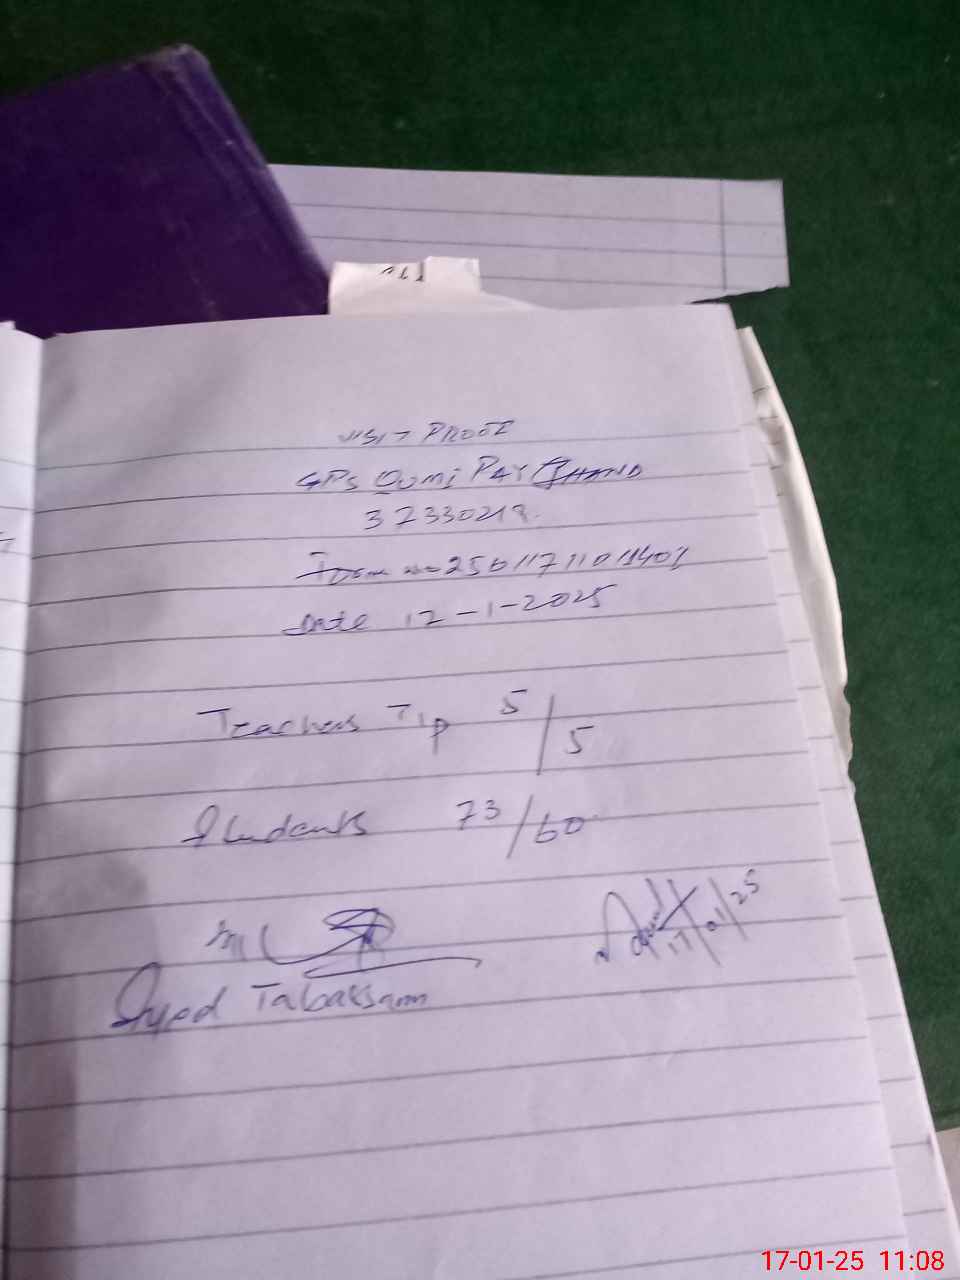 VISIT PROOF
GPS Qumi PAY
37330218.
no 25011711011401
Date 17-1-2025
Teachers T/P 5/5
Students 73/60
17/01/25
Syed
17-01-25 11:08